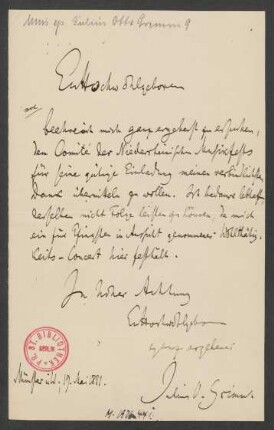 Mus. ep. Julius Otto Grimm 9
Ew Hochwohlgeboren
beehre ich mich ganz ergebenst zu ersuchen,
dem Comité der Niederrheinischen Musikfeste
für seine gütige Einladung meinen verbindlichsten
Dank übermitteln zu wollen. Ich bedaure lebhaft
derselben nicht Folge leisten zu können, da mich
ein für Pfingsten in Aussicht genommenes Wohlthätig-
keits-Concert hier festhält.
In hoher Achtung
Ew Hochwohlgeboren
ergebener
Julius O. Grimm
Münster i/W. 19. Mai
BIBLIOTHEK
BERLIN